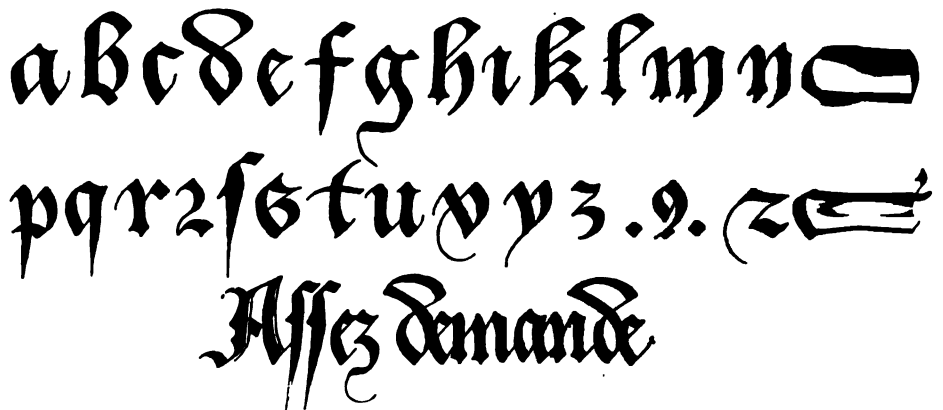 abcdefghıklmno
pqrꝛſstuvyz.9.ꝛc
Aſſez demande